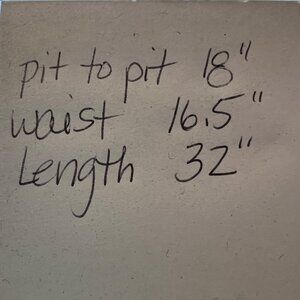 pit to pit 18"
waist 16.5"
Length 32"